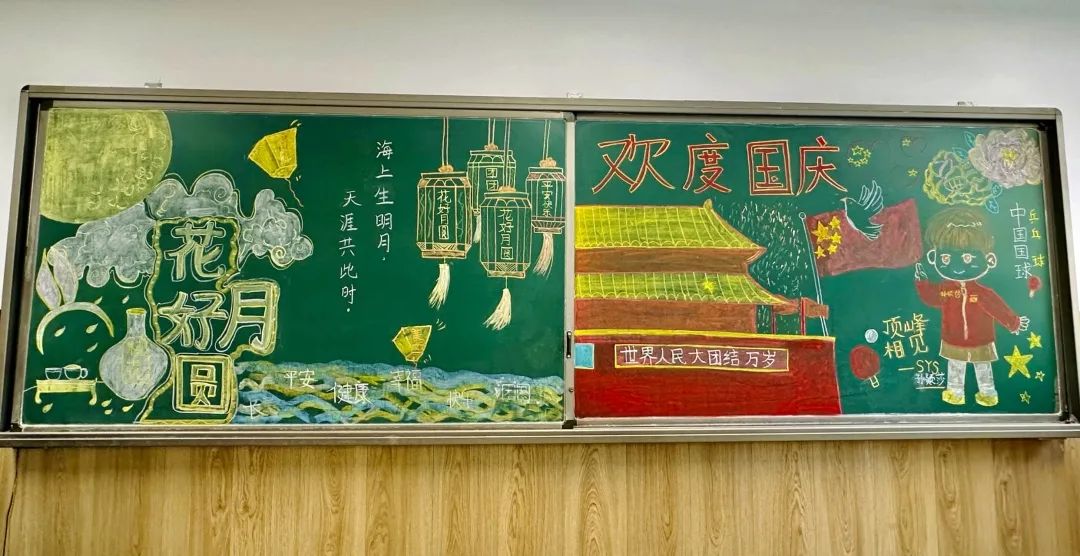 花
好月
圆
海上生明月.
天涯共此时.
花好月圆
花好月圆
平安快乐
平安
健康
幸福
欢度国庆
世界人民大团结万岁
中国国球
乒乓球
顶峰
相见
—SYS
孙颖莎